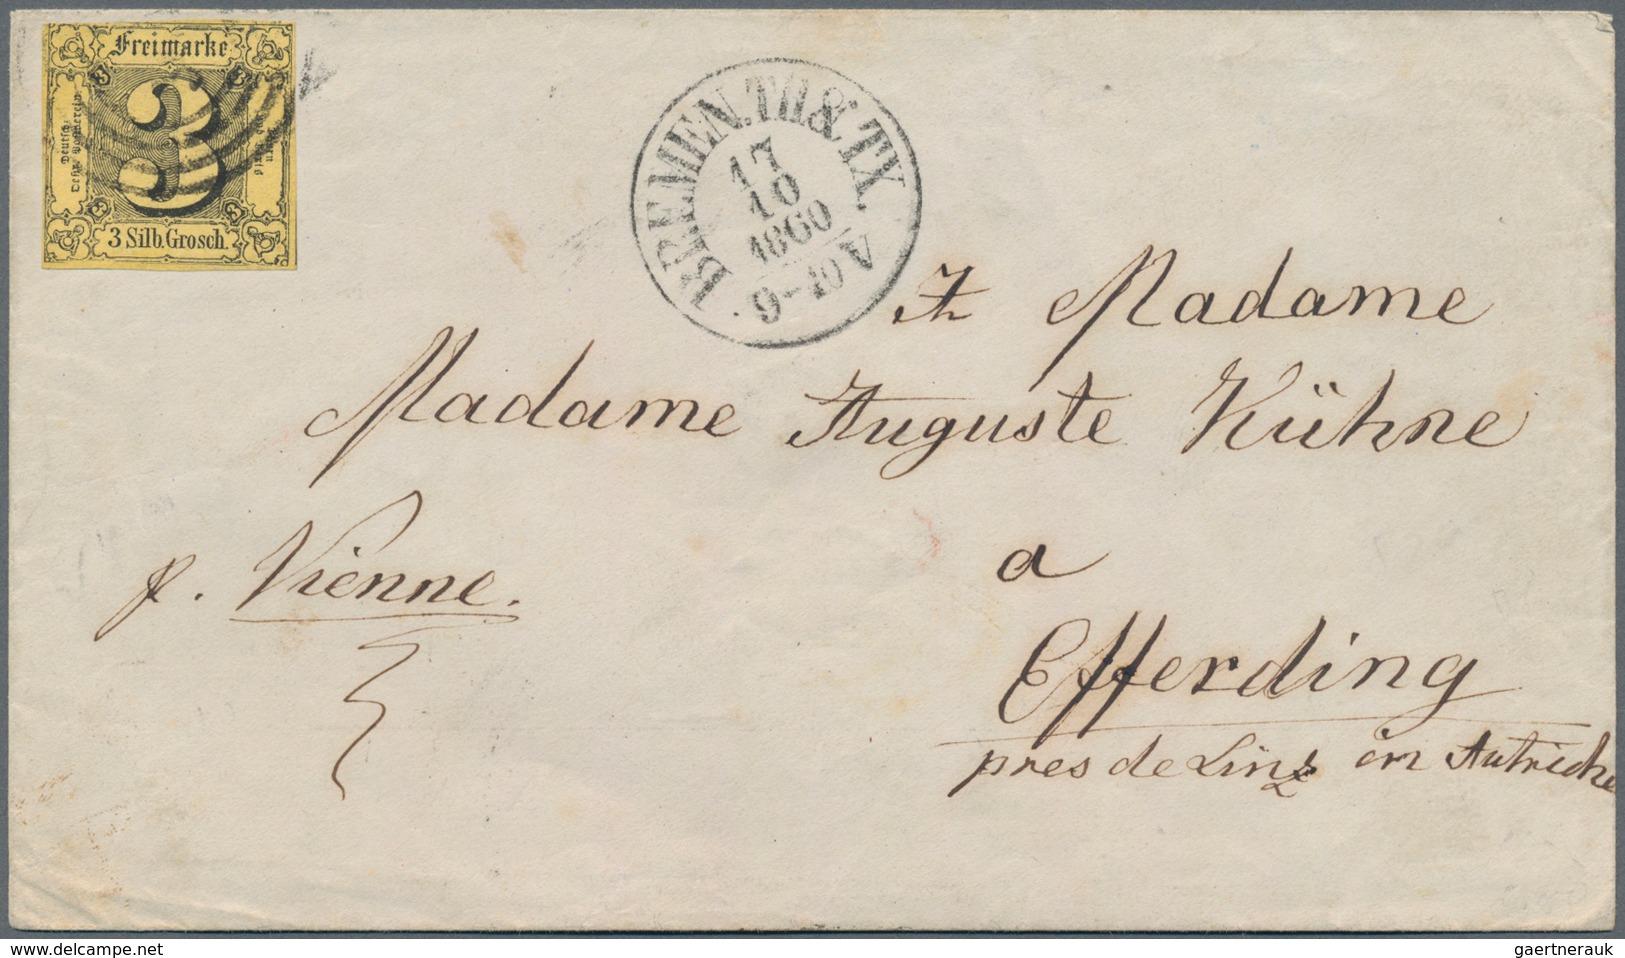 Freimarke
3
3
3
3
3
Deutsch
Oestr. Postverein
3 Silb. Grosch.
BREMEN. TH & TX.
17
10
1860
9-10 V
A Madame
Madame Auguste Kühne
p. Vienne.
a
Efferding
pres de Linz en Autriche
www.delcampe.net
gaertnerauk